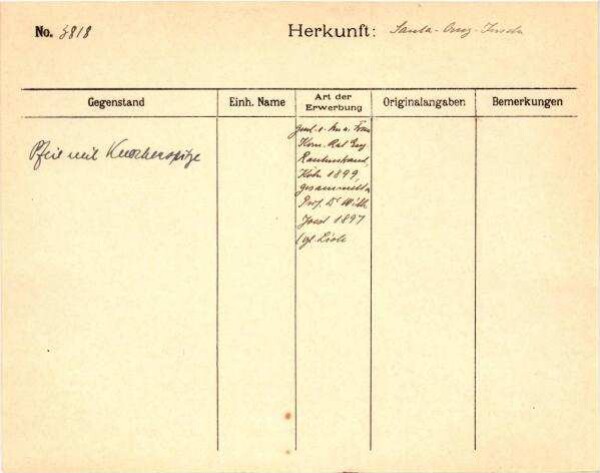 No. 3818
Herkunft: Santa-Cruz-Inseln
Gegenstand
Einh. Name
Art der Erwerbung
Originalangaben
Bemerkungen
Pfeil mit Knochenspitze
Kom. Rat Eug
Rautenstrauch,
Köln 1899,
gesammelt v.
Prof. Dr Wilh.
Joest 1897
vgl. Liste